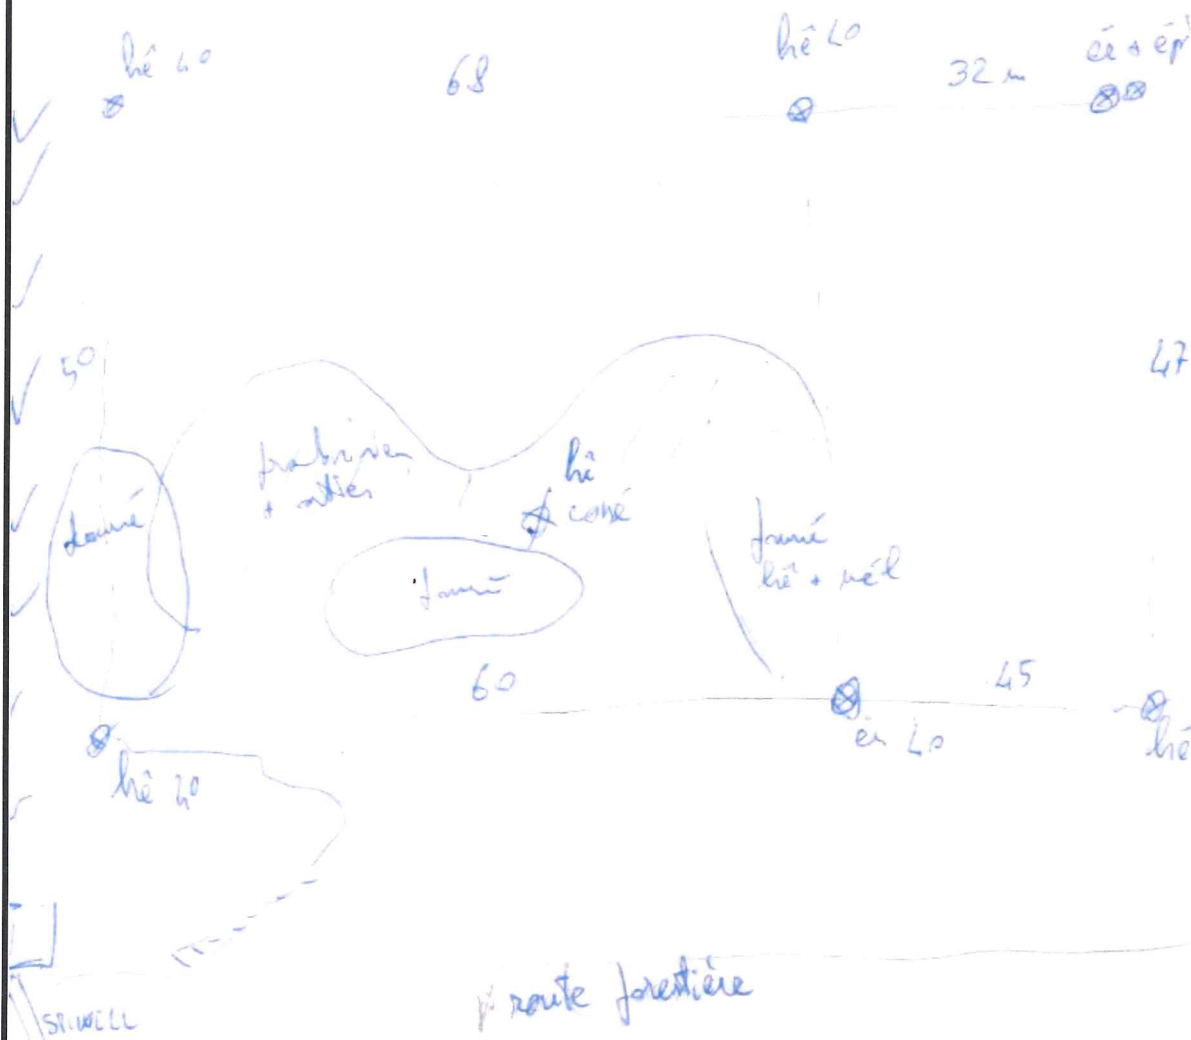 hê 40
68
hê 40
32 m
ér + ép
50
47
framboisier
+ orties
hê
cassé
fourré
fourré
fourré
hê + mél
60
45
ér 40
hê
hê 40
route forestière